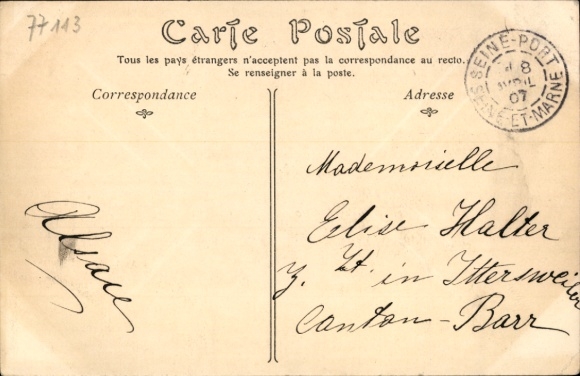 77 113
Carte Postale
Tous les pays étrangers n'acceptent pas la correspondance au recto.
Se renseigner à la poste.
Correspondance
Adresse
SEINE-PORT
8
AVRIL
07
SEINE-ET-MARNE
Mademoiselle
Elise Halter
z. Zt. in Ittersweiler
Canton-Barr
Alsace